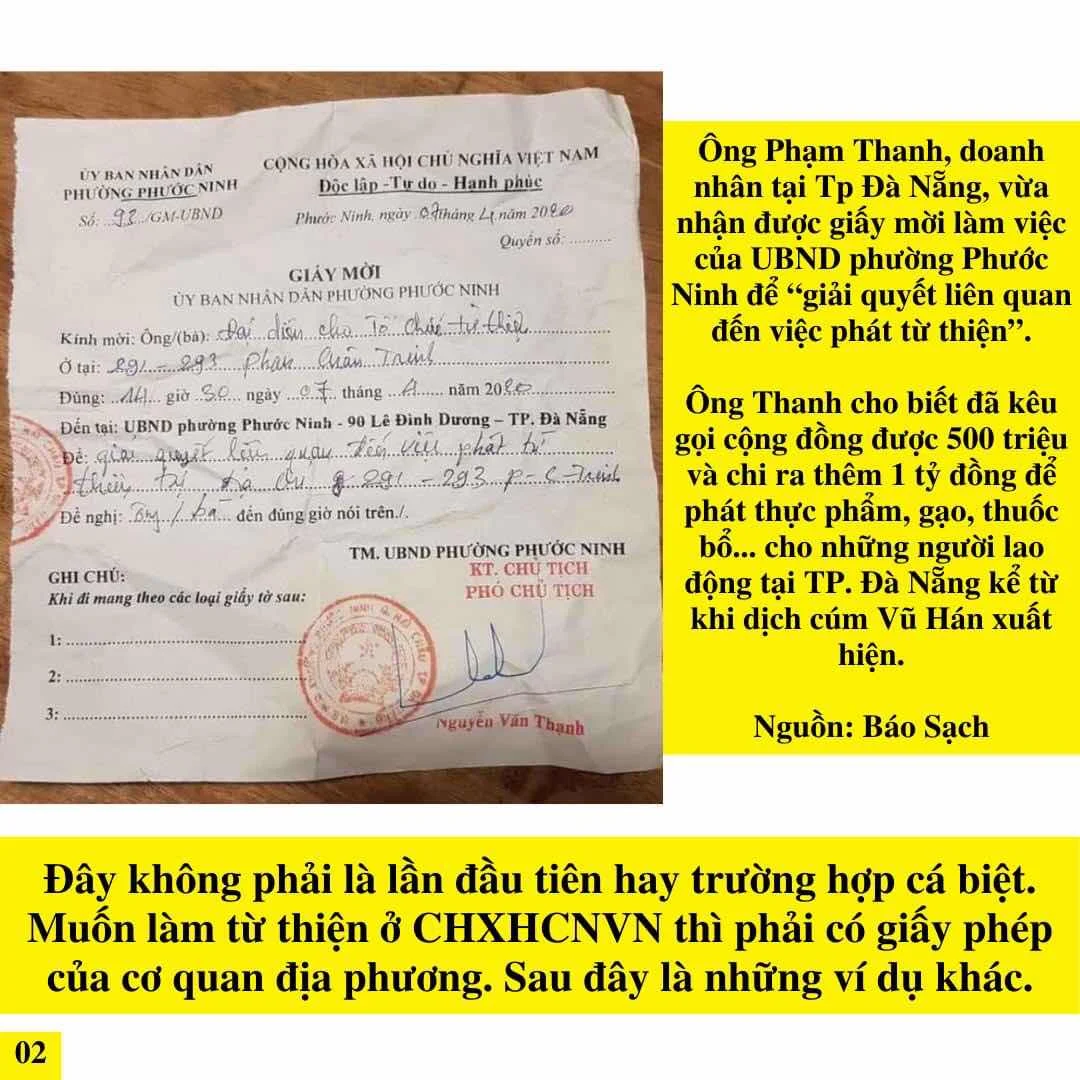 ỦY BAN NHÂN DÂN
PHƯỜNG PHƯỚC NINH
Số: ..92../GM-UBND
CỘNG HÒA XÃ HỘI CHỦ NGHĨA VIỆT NAM
Độc lập -Tự do - Hạnh phúc
Phước Ninh, ngày 07 tháng 4 năm 2020
Quyển số: ..........
GIẤY MỜI
ỦY BAN NHÂN DÂN PHƯỜNG PHƯỚC NINH
Kính mời: Ông/(bà): Đại diện cho Tổ chức từ thiện
Ở tại: 291 - 293 Phan Châu Trinh
Đúng: ..14.. giờ ..30.. ngày ..07.. tháng ..4.. năm 2020
Đến tại: UBND phường Phước Ninh - 90 Lê Đình Dương – TP. Đà Nẵng
Để: giải quyết liên quan đến việc phát từ
thiện tại 291 - 293 P-C-Trinh
Đề nghị: Ông / bà đến đúng giờ nói trên./.
TM. UBND PHƯỜNG PHƯỚC NINH
KT. CHỦ TỊCH
PHÓ CHỦ TỊCH
GHI CHÚ:
Khi đi mang theo các loại giấy tờ sau:
1: ..........
2: ..........
3: ..........
Nguyễn Văn Thạnh
Ông Phạm Thanh, doanh
nhân tại Tp Đà Nẵng, vừa
nhận được giấy mời làm việc
của UBND phường Phước
Ninh để “giải quyết liên quan
đến việc phát từ thiện”.
Ông Thanh cho biết đã kêu
gọi cộng đồng được 500 triệu
và chi ra thêm 1 tỷ đồng để
phát thực phẩm, gạo, thuốc
bổ... cho những người lao
động tại TP. Đà Nẵng kể từ
khi dịch cúm Vũ Hán xuất
hiện.
Nguồn: Báo Sạch
Đây không phải là lần đầu tiên hay trường hợp cá biệt.
Muốn làm từ thiện ở CHXHCNVN thì phải có giấy phép
của cơ quan địa phương. Sau đây là những ví dụ khác.
02